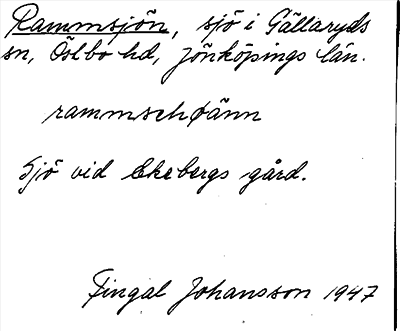 Rammsjön, sjö i Gällaryds
sn, Östbo hd, Jönköpings län.
rammschøänn
Sjö vid Ekebergs gård.
Fingal Johansson 1947